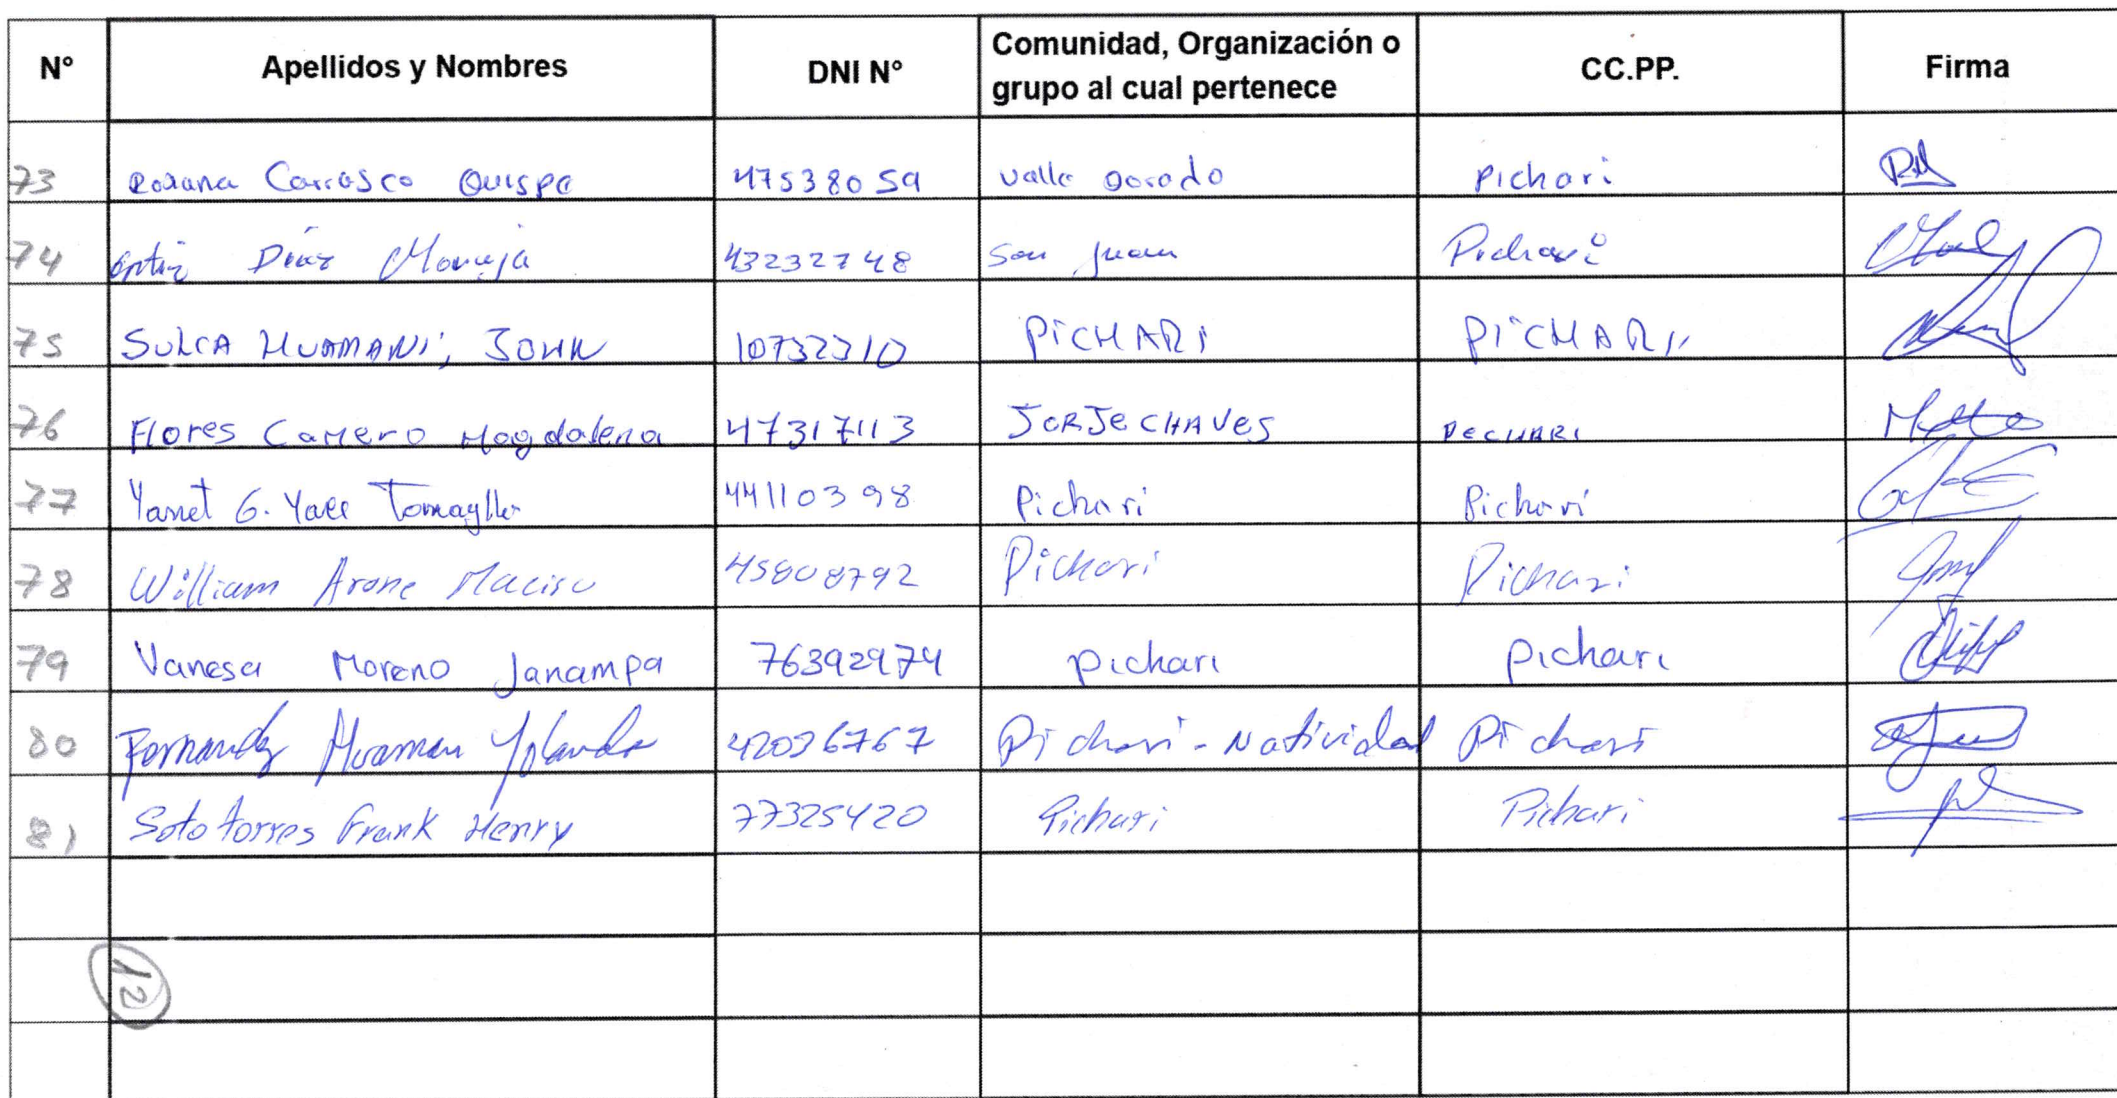 N° Apellidos y Nombres DNI N° Comunidad, Organización o grupo al cual pertenece CC.PP. Firma
73 Roxana Carrasco Quispe 47538059 Valle Dorado Pichari
74 Díaz 43232748 San Juan Pichari
75 SULCA HUAMANI, JOHN 10732310 PICHARI PICHARI
76 Flores Camero Magdalena 47317113 JORJE CHAVES PECHARI
77 Yanet G. 44110398 Pichari Pichari
78 William Arone 45808792 Pichari Pichari
79 Vanesa Moreno Janampa 76392974 pichari pichari
80 Fernandez Huaman Yolanda 42036767 Pichari - Natividad Pichari
81 Soto Torres Frank Henry 77325420 Pichari Pichari
12